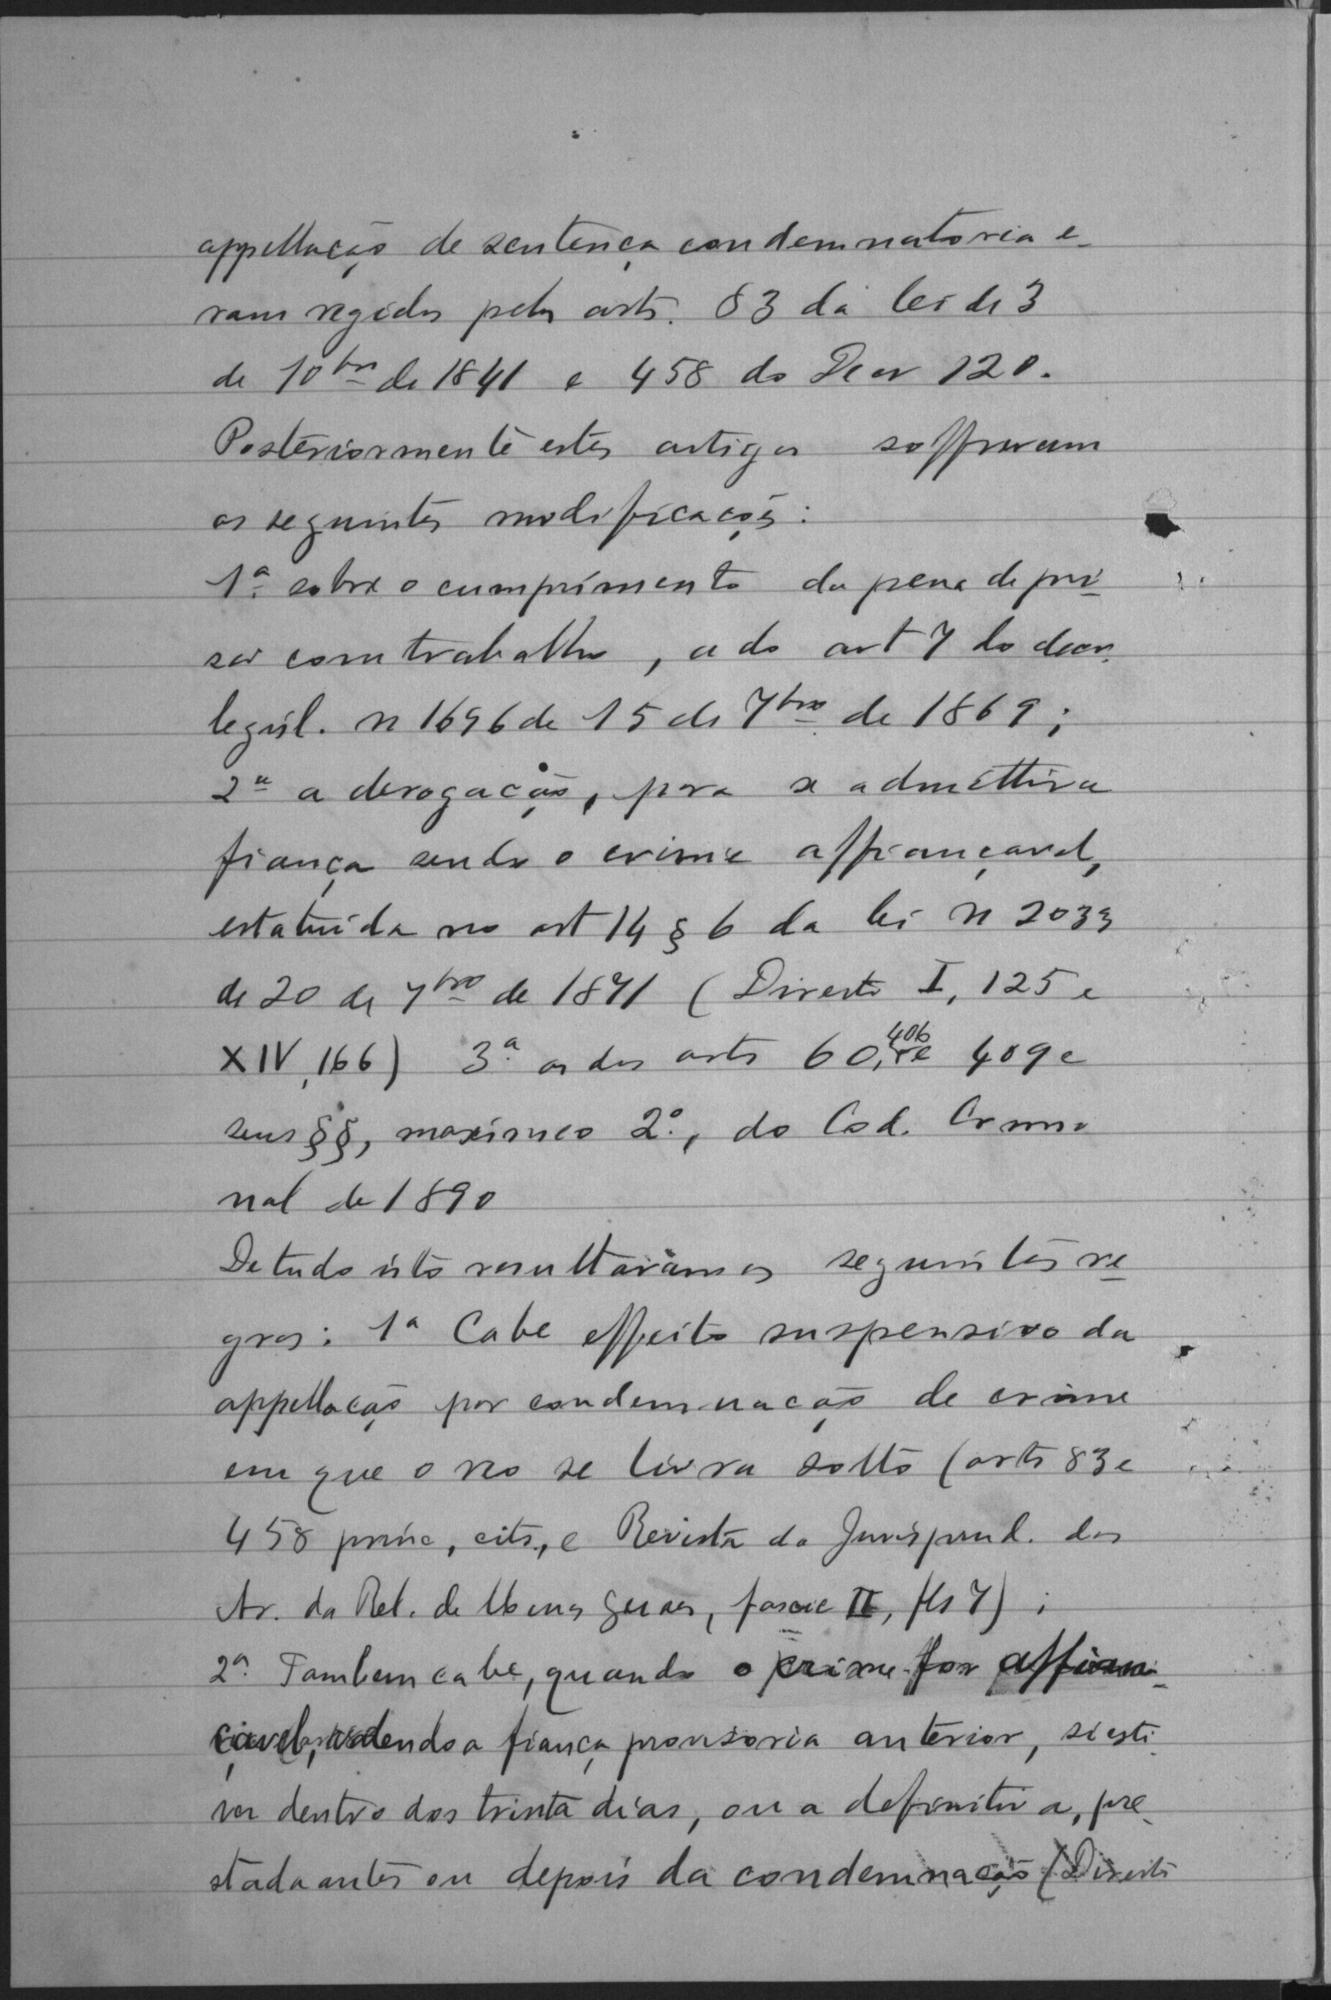 appellação de sentença condemnatoria e-
ram regidos pelos arts. 83 da lei de 3
de 10bro de 1841 e 458 do Decr 120.
Posteriormente estes artigos soffreram
as seguintes modificações:
1ª sobre o cumprimento da pena de pri-
são com trabalho, a do art 7 do decr.
legisl. n 1696 de 15 de 7bro de 1869;
2ª a derogação, para se admittir a
fiança sendo o crime affiançavel,
estatuida no art 14 § 6 da lei n 2033
de 20 de 7bro de 1871 (Direito I, 125 e
XIV, 166) 3ª as dos arts 60, 406 e 409 e
seus §§, maximeo 2º, do Cod. Crimi
nal de 1890
De tudo isto resultaram as seguintes re-
gras: 1ª Cabe effeito suspensivo da
appellação por condemnação de crime
em que o reo se livra solto (arts 83 e
458 princ, cits., e Revista da Jurisprud. dos
Ar. da Rel. de Minas Geraes, fascic II, fls 7);
2ª Tambem cabe, quando o crime for affian-
çavel, valendo a fiança provisoria anterior, si esti-
ver dentro dos trinta dias, ou a definitiva, pre-
stada antes ou depois da condemnação (Direito